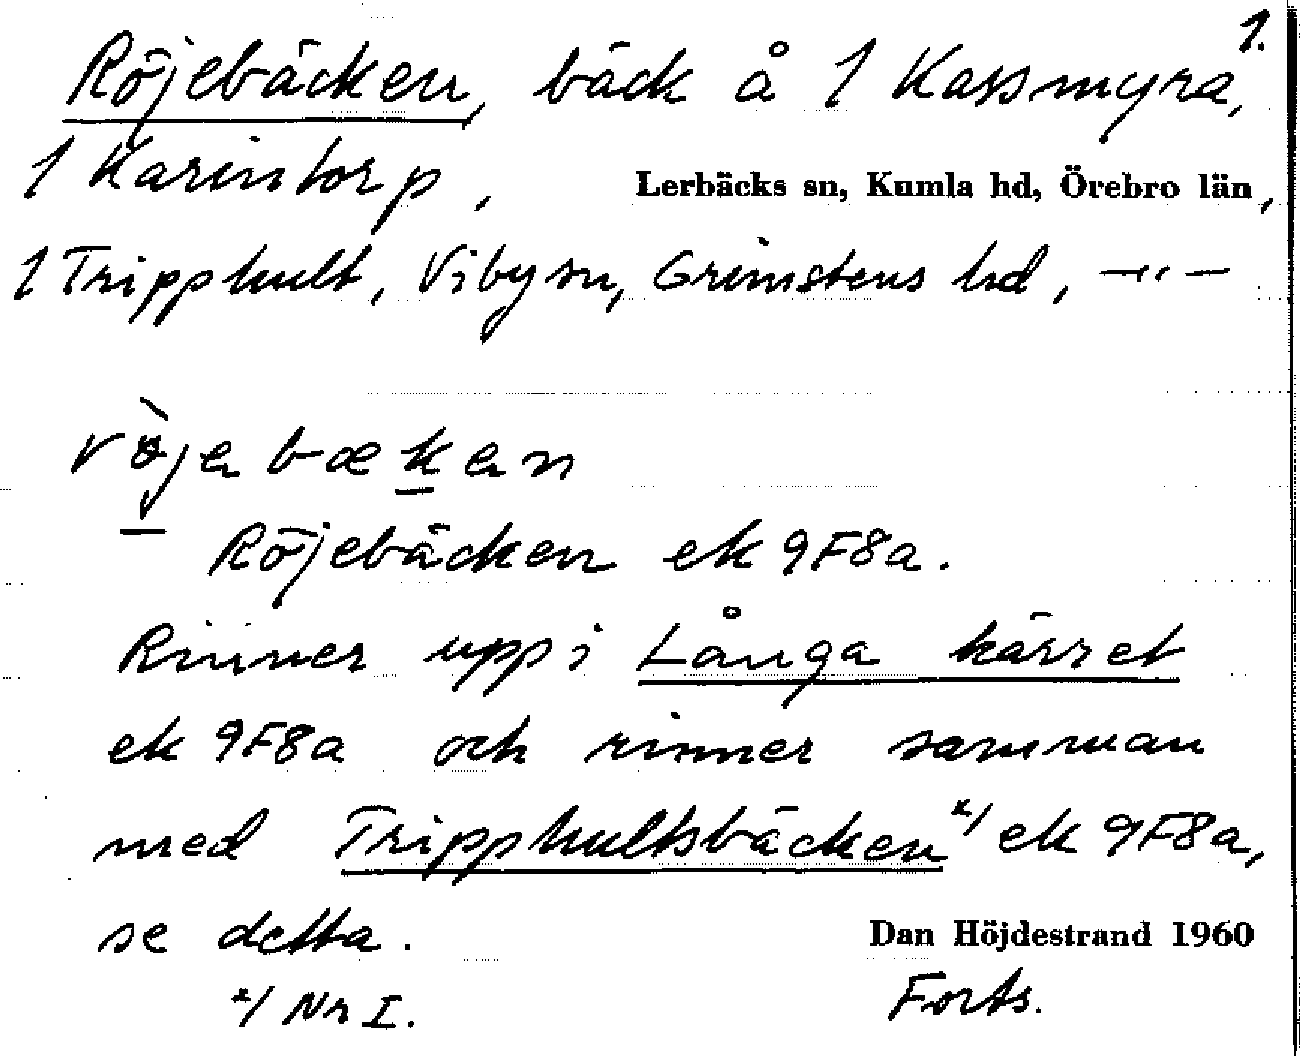 1.
Röjebäcken, bäck å 1 Kassmyra,
1 Karintorp, Lerbäcks sn, Kumla hd, Örebro län,
1 Tripphult, Viby sn, Grimstens hd, —"—
röjebækən
Röjebäcken ek 9F8a.
Rinner upp i Långa kärret
ek 9F8a och rinner samman
med Tripphultsbäcken x/ ek 9F8a,
se detta. Dan Höjdestrand 1960
x/ Nr I. Forts.